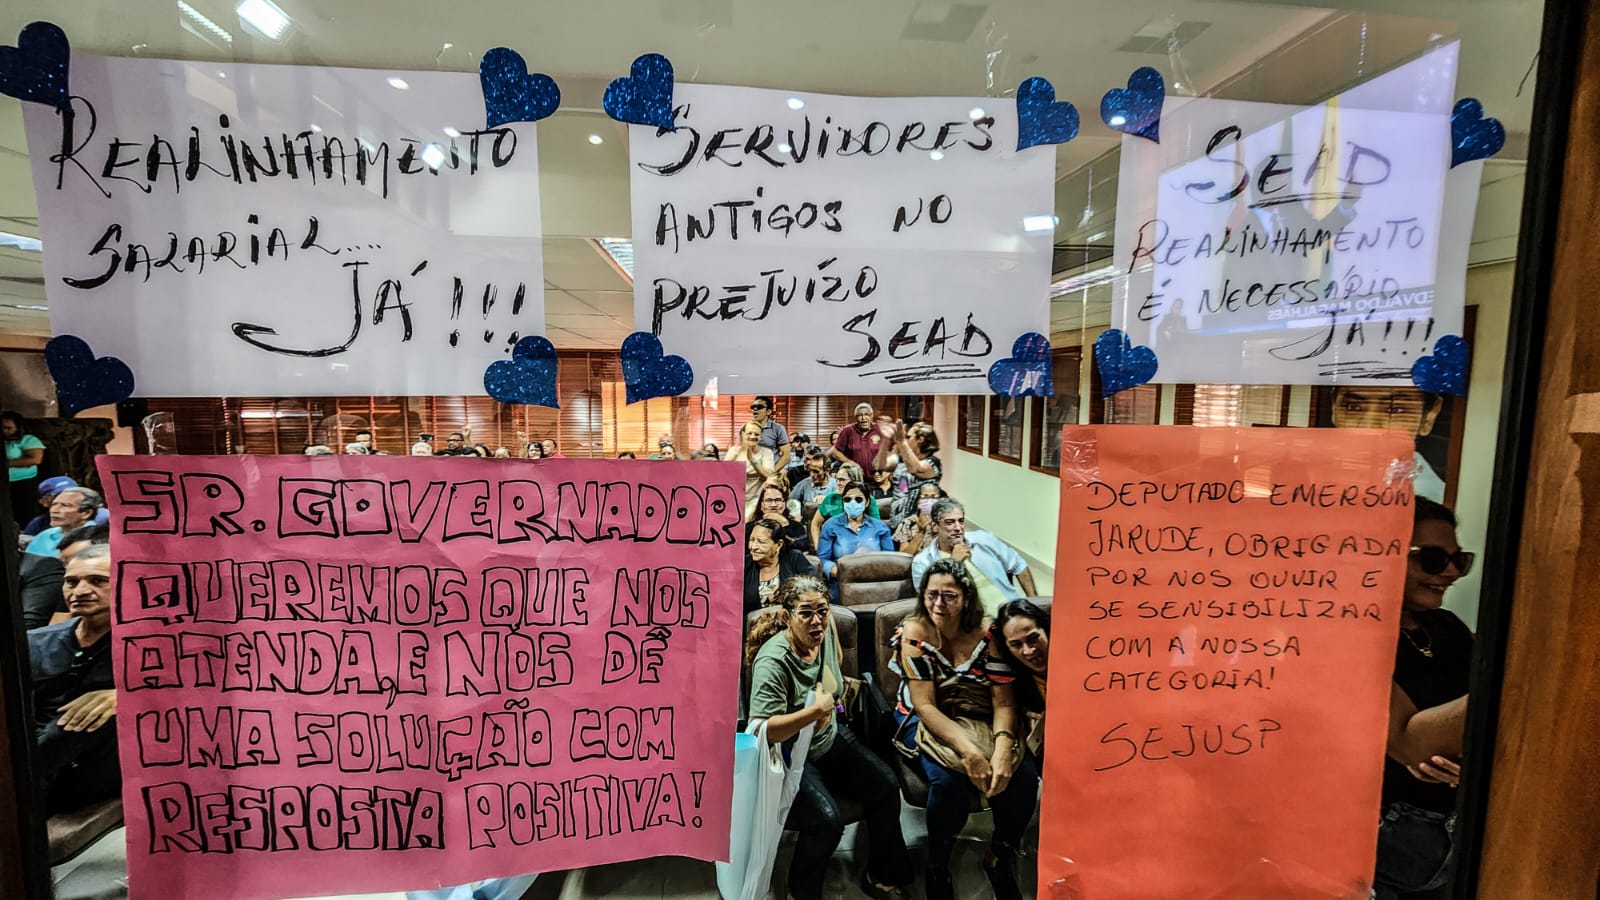 REALINHAMENTO
SALARIAL....
JÁ!!!
SERVIDORES
ANTIGOS NO
PREJUÍZO
SEAD
SEAD
REALINHAMENTO
É NECESSÁRIO
JÁ!!!
EDVALDO MAGALHÃES
SR. GOVERNADOR
QUEREMOS QUE NOS
ATENDA, E NOS DÊ
UMA SOLUÇÃO COM
RESPOSTA POSITIVA!
DEPUTADO EMERSON
JARUDE, OBRIGADA
POR NOS OUVIR E
SE SENSIBILIZAR
COM A NOSSA
CATEGORIA!
SEJUSP